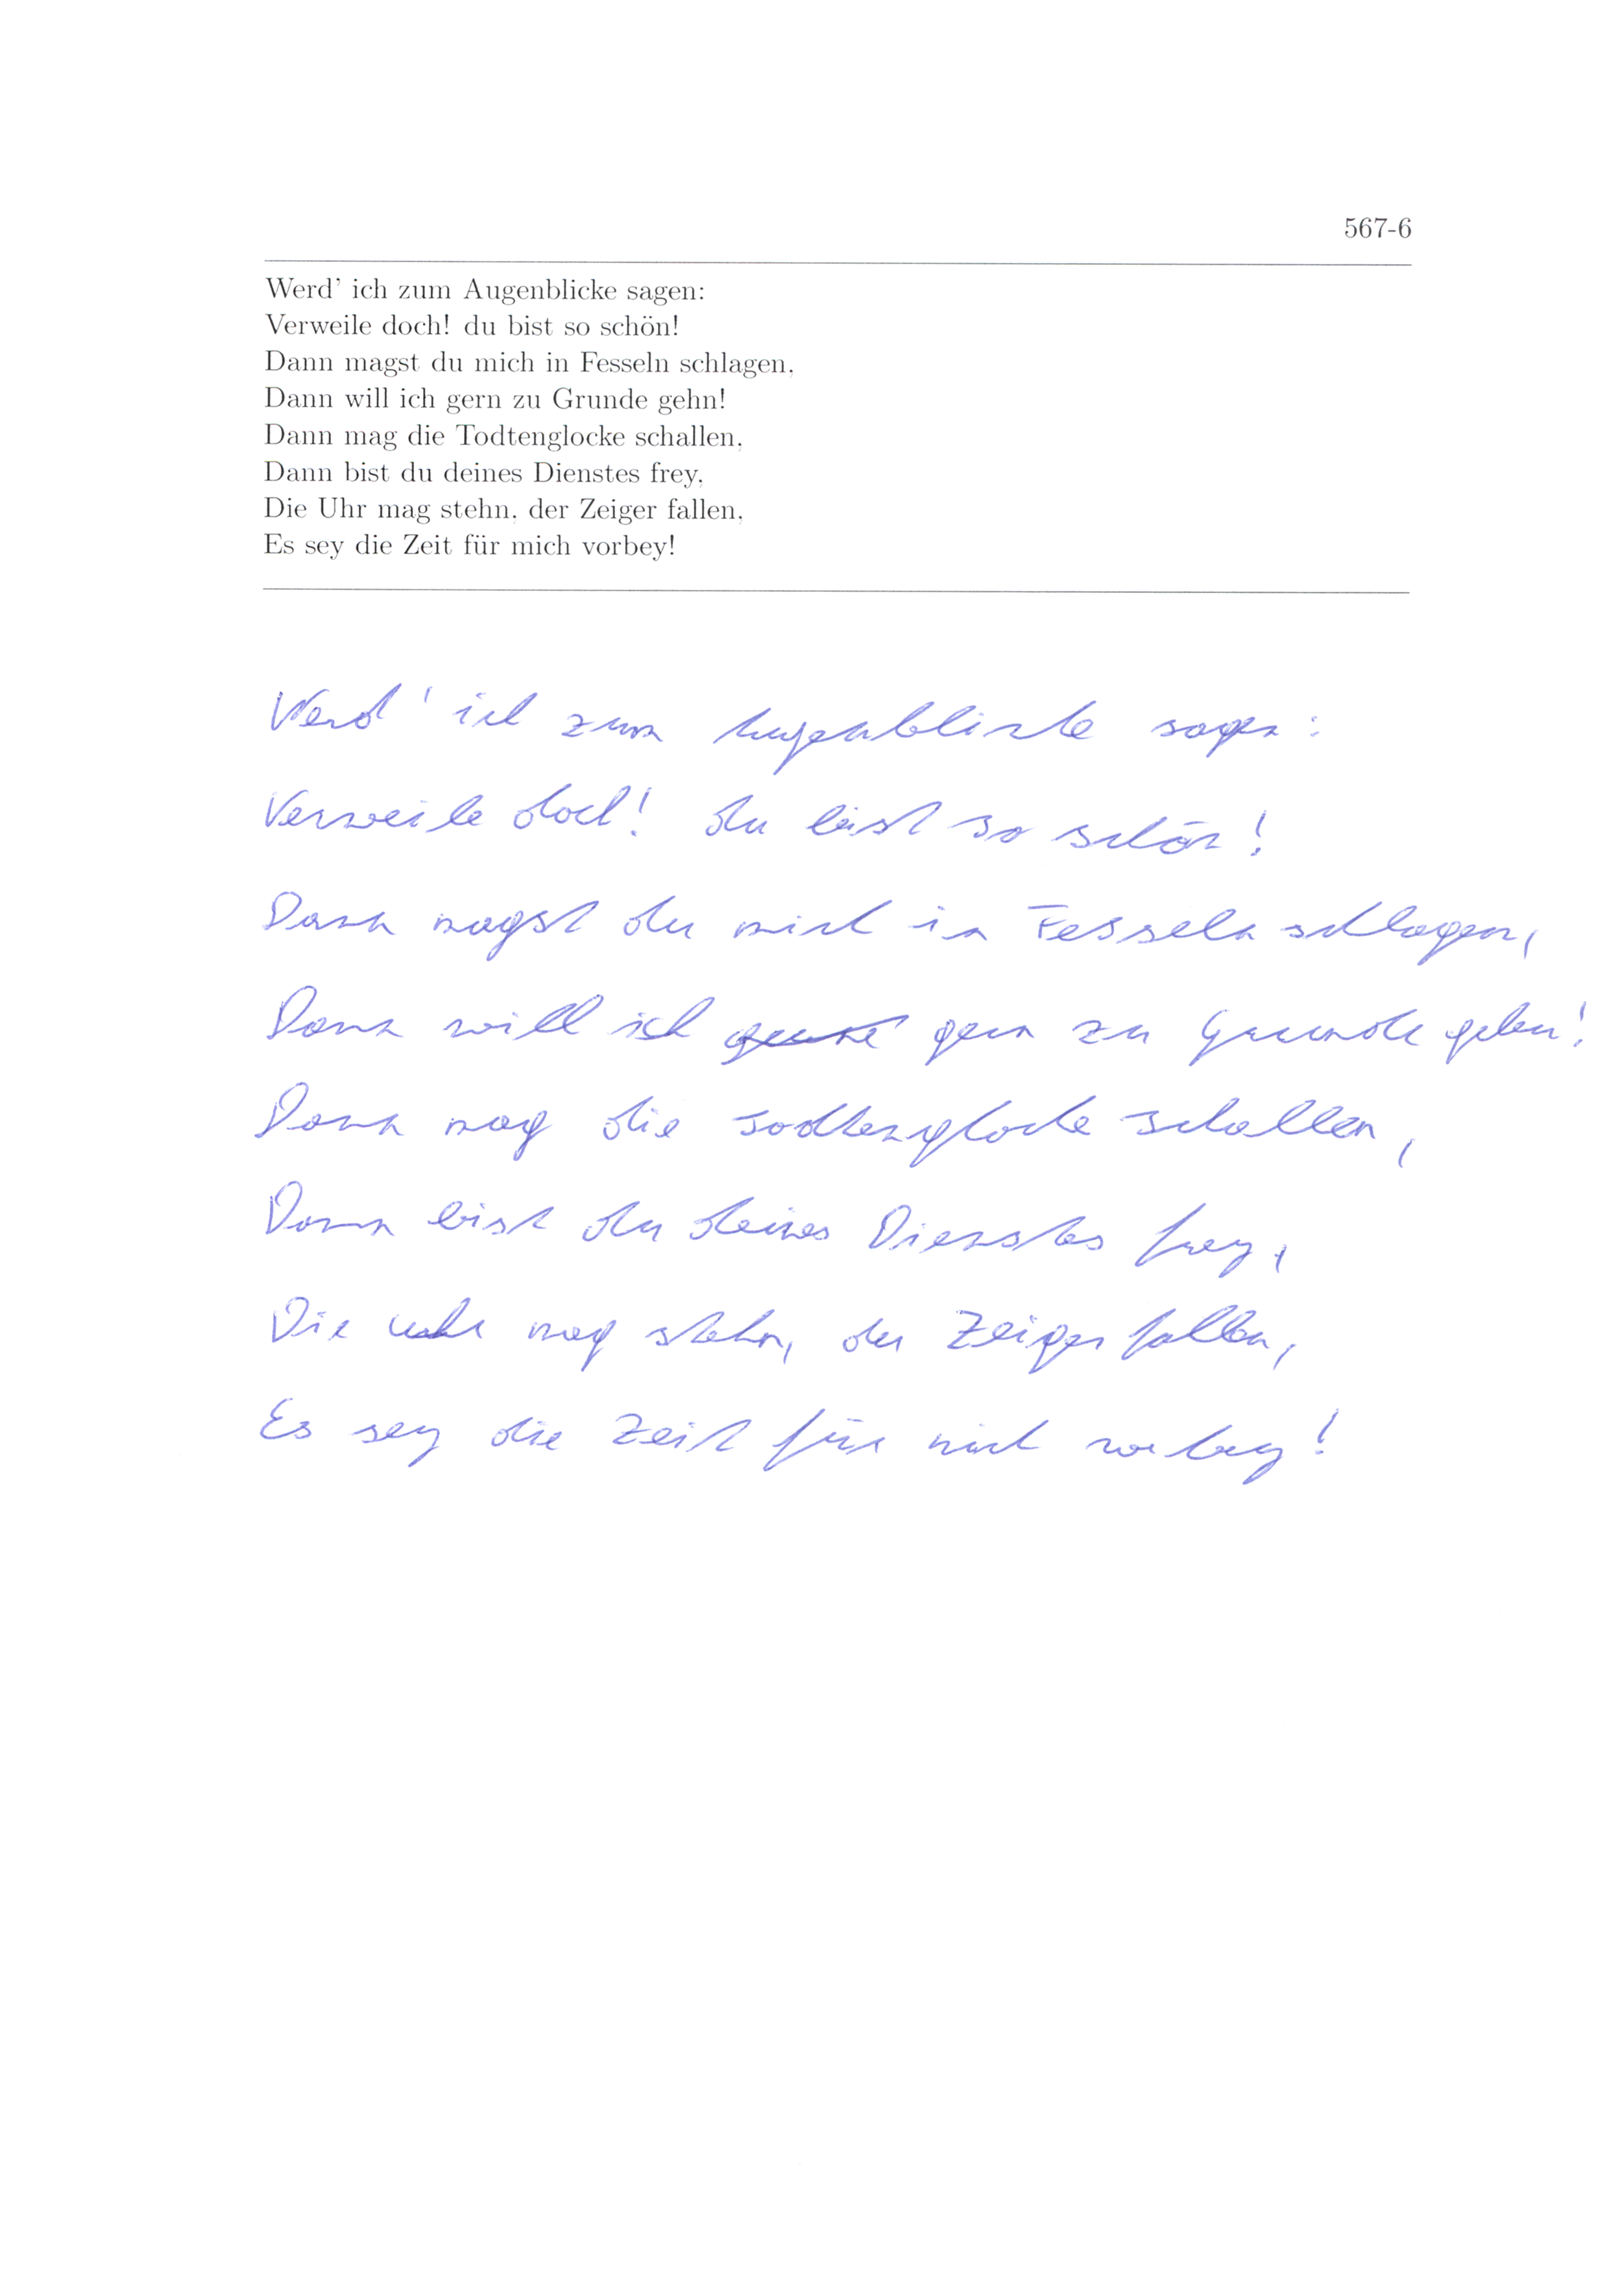 567-6
Werd' ich zum Augenblicke sagen:
Verweile doch! du bist so schön!
Dann magst du mich in Fesseln schlagen,
Dann will ich gern zu Grunde gehn!
Dann mag die Todtenglocke schallen,
Dann bist du deines Dienstes frey,
Die Uhr mag stehn, der Zeiger fallen,
Es sey die Zeit für mich vorbey!
Werd' ich zum Augenblicke sagen:
Verweile doch! du bist so schön!
Dann magst du mich in Fesseln schlagen,
Dann will ich gern zu Grunde gehn!
Dann mag die Todtenglocke schallen,
Dann bist du deines Dienstes frey,
Die Uhr mag stehn, der Zeiger fallen,
Es sey die Zeit für mich vorbey!